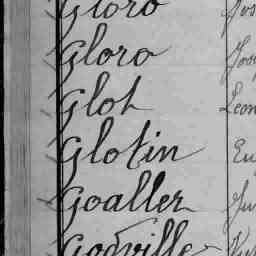 Gloro Jos
Gloro Jose
Glot Leon
Glotin Eu
Goaller Ju
Godville